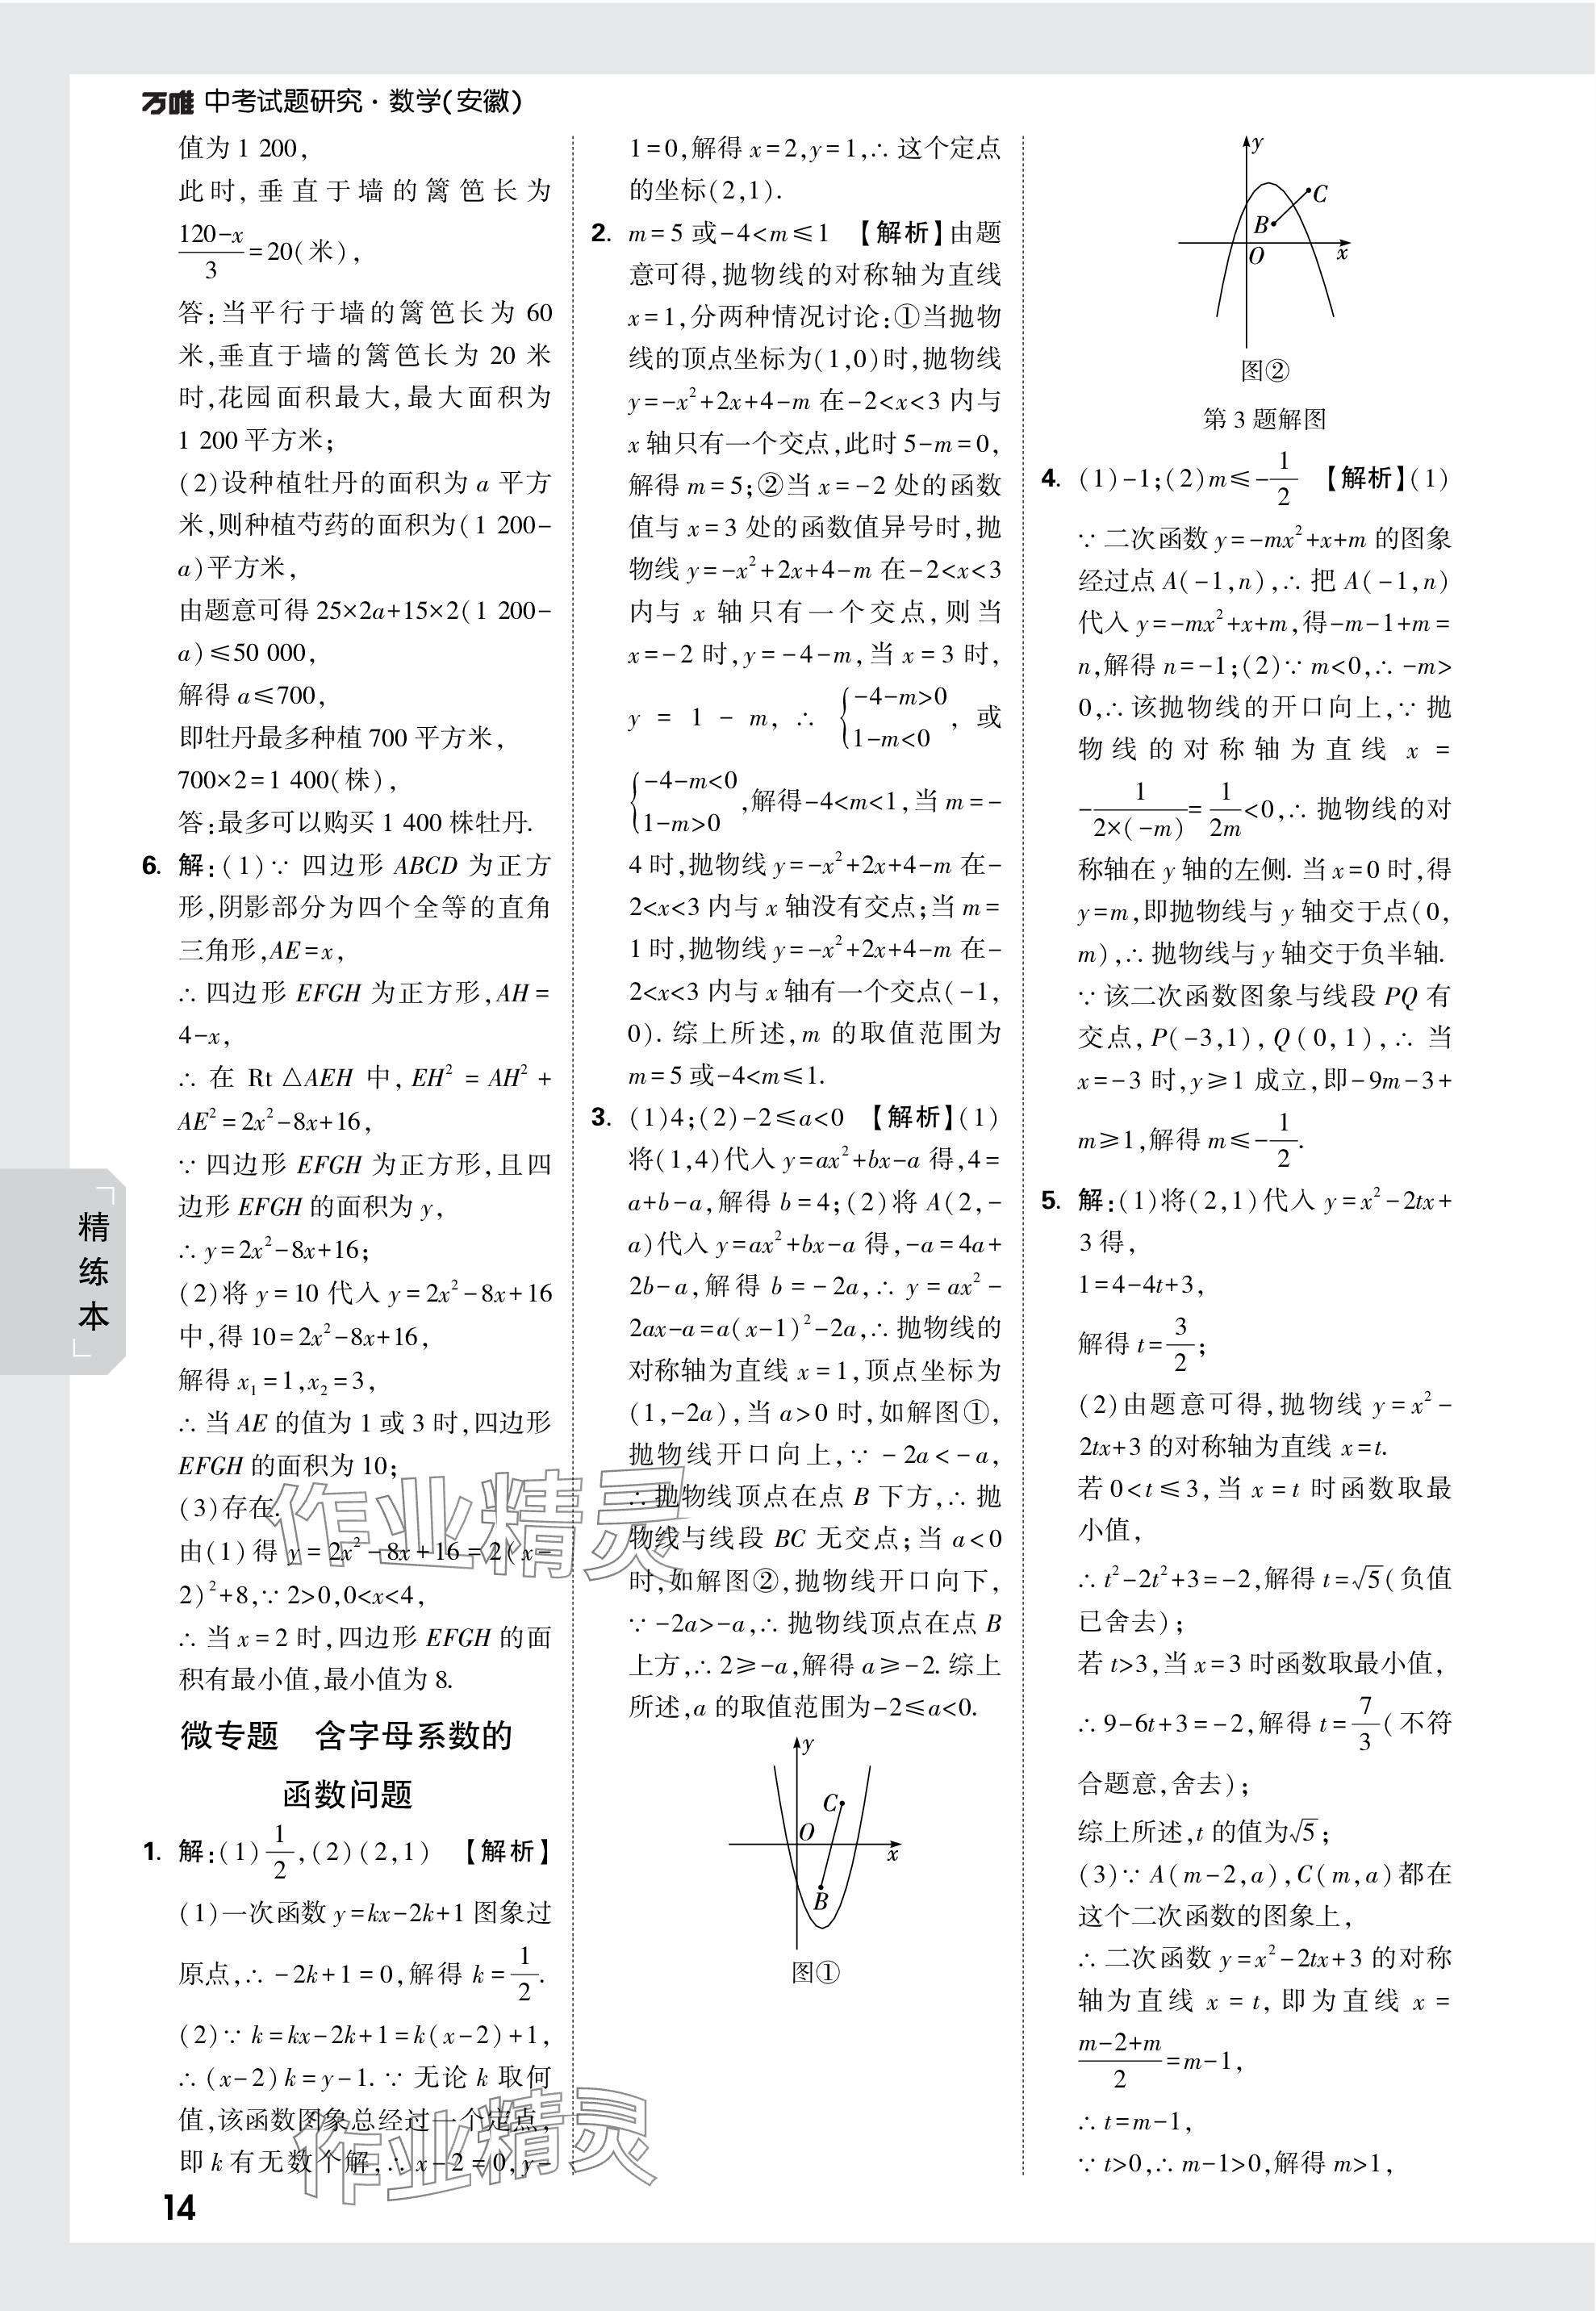 万唯 中考试题研究·数学(安徽)
值为 1 200,
此时,垂直于墙的篱笆长为
120-x/3=20(米),
答:当平行于墙的篱笆长为 60
米,垂直于墙的篱笆长为 20 米
时,花园面积最大,最大面积为
1 200 平方米;
(2)设种植牡丹的面积为 a 平方
米,则种植芍药的面积为(1 200-
a)平方米,
由题意可得 25×2a+15×2(1 200-
a)≤50 000,
解得 a≤700,
即牡丹最多种植 700 平方米,
700×2=1 400(株),
答:最多可以购买 1 400 株牡丹.
6. 解:(1)∵ 四边形 ABCD 为正方
形,阴影部分为四个全等的直角
三角形,AE=x,
∴ 四边形 EFGH 为正方形,AH=
4-x,
∴ 在 Rt △AEH 中,EH²=AH²+
AE²=2x²-8x+16,
∵ 四边形 EFGH 为正方形,且四
边形 EFGH 的面积为 y,
∴ y=2x²-8x+16;
(2)将 y=10 代入 y=2x²-8x+16
中,得 10=2x²-8x+16,
解得 x₁=1,x₂=3,
∴ 当 AE 的值为 1 或 3 时,四边形
EFGH 的面积为 10;
(3)存在.
由(1)得 y=2x²-8x+16=2(x-
2)²+8,∵ 2>0,0<x<4,
∴ 当 x=2 时,四边形 EFGH 的面
积有最小值,最小值为 8.
微专题 含字母系数的
函数问题
1. 解:(1)1/2,(2)(2,1) 【解析】
(1)一次函数 y=kx-2k+1 图象过
原点,∴ -2k+1=0,解得 k=1/2.
(2)∵ k=kx-2k+1=k(x-2)+1,
∴ (x-2)k=y-1. ∵ 无论 k 取何
值,该函数图象总经过一个定点,
即 k 有无数个解,∴ x-2=0,y-
1=0,解得 x=2,y=1,∴ 这个定点
的坐标(2,1).
2. m=5 或-4<m≤1 【解析】由题
意可得,抛物线的对称轴为直线
x=1,分两种情况讨论:①当抛物
线的顶点坐标为(1,0)时,抛物线
y=-x²+2x+4-m 在-2<x<3 内与
x 轴只有一个交点,此时 5-m=0,
解得 m=5;②当 x=-2 处的函数
值与 x=3 处的函数值异号时,抛
物线 y=-x²+2x+4-m 在-2<x<3
内与 x 轴只有一个交点,则当
x=-2 时,y=-4-m,当 x=3 时,
y=1-m,∴ {-4-m>0 1-m<0,或
{-4-m<0 1-m>0,解得-4<m<1,当 m=-
4 时,抛物线 y=-x²+2x+4-m 在-
2<x<3 内与 x 轴没有交点;当 m=
1 时,抛物线 y=-x²+2x+4-m 在-
2<x<3 内与 x 轴有一个交点(-1,
0). 综上所述,m 的取值范围为
m=5 或-4<m≤1.
3. (1)4;(2)-2≤a<0 【解析】(1)
将(1,4)代入 y=ax²+bx-a 得,4=
a+b-a,解得 b=4;(2)将 A(2,-
a)代入 y=ax²+bx-a 得,-a=4a+
2b-a,解得 b=-2a,∴ y=ax²-
2ax-a=a(x-1)²-2a,∴ 抛物线的
对称轴为直线 x=1,顶点坐标为
(1,-2a),当 a>0 时,如解图①,
抛物线开口向上,∵ -2a<-a,
∴ 抛物线顶点在点 B 下方,∴ 抛
物线与线段 BC 无交点;当 a<0
时,如解图②,抛物线开口向下,
∵ -2a>-a,∴ 抛物线顶点在点 B
上方,∴ 2≥-a,解得 a≥-2. 综上
所述,a 的取值范围为-2≤a<0.
y
C
O
x
B
图①
y
C
B
O
x
图②
第 3 题解图
4. (1)-1;(2)m≤-1/2 【解析】(1)
∵ 二次函数 y=-mx²+x+m 的图象
经过点 A(-1,n),∴ 把 A(-1,n)
代入 y=-mx²+x+m,得-m-1+m=
n,解得 n=-1;(2)∵ m<0,∴ -m>
0,∴ 该抛物线的开口向上,∵ 抛
物线的对称轴为直线 x=
-1/2×(-m)=1/2m<0,∴ 抛物线的对
称轴在 y 轴的左侧. 当 x=0 时,得
y=m,即抛物线与 y 轴交于点(0,
m),∴ 抛物线与 y 轴交于负半轴.
∵ 该二次函数图象与线段 PQ 有
交点,P(-3,1),Q(0,1),∴ 当
x=-3 时,y≥1 成立,即-9m-3+
m≥1,解得 m≤-1/2.
5. 解:(1)将(2,1)代入 y=x²-2tx+
3 得,
1=4-4t+3,
解得 t=3/2;
(2)由题意可得,抛物线 y=x²-
2tx+3 的对称轴为直线 x=t.
若 0<t≤3,当 x=t 时函数取最
小值,
∴ t²-2t²+3=-2,解得 t=√5(负值
已舍去);
若 t>3,当 x=3 时函数取最小值,
∴ 9-6t+3=-2,解得 t=7/3(不符
合题意,舍去);
综上所述,t 的值为√5;
(3)∵ A(m-2,a),C(m,a)都在
这个二次函数的图象上,
∴ 二次函数 y=x²-2tx+3 的对称
轴为直线 x=t,即为直线 x=
m-2+m/2=m-1,
∴ t=m-1,
∵ t>0,∴ m-1>0,解得 m>1,
精练本
作业精灵
作业精灵
14